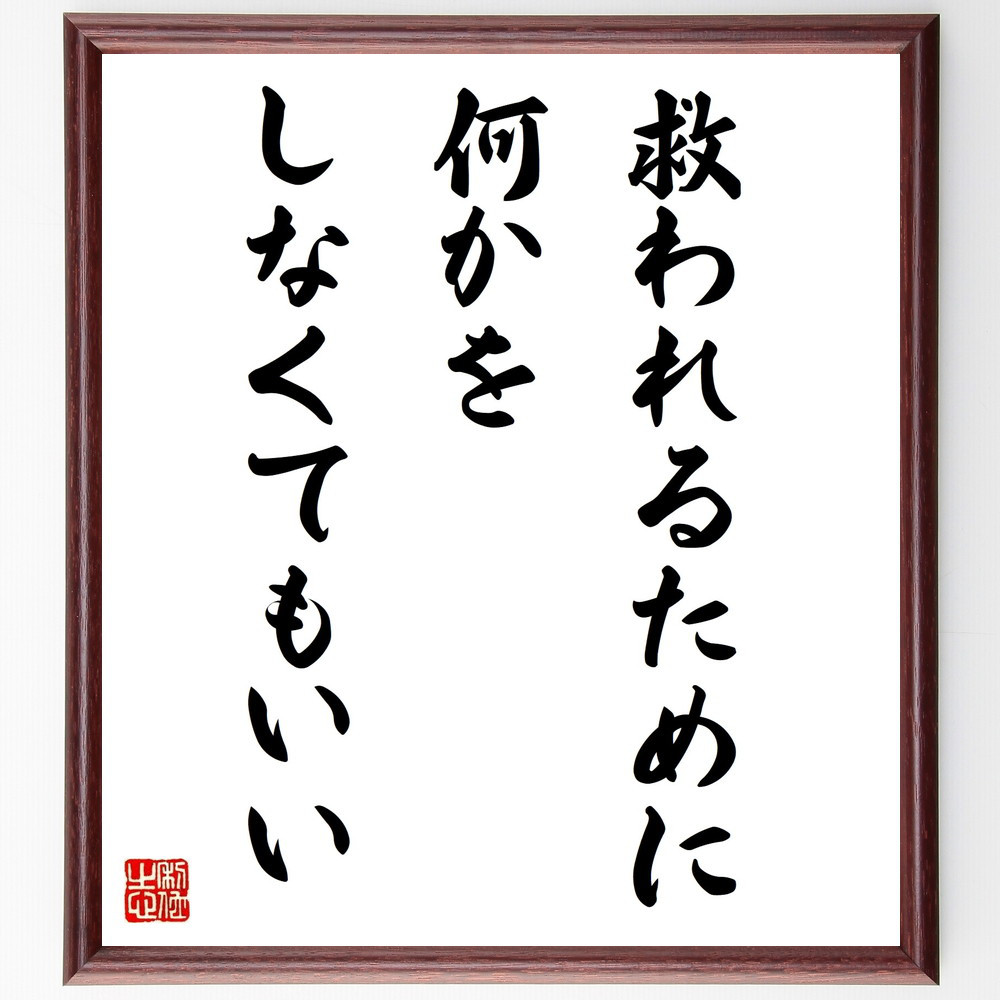 救われるために
何かを
しなくてもいい